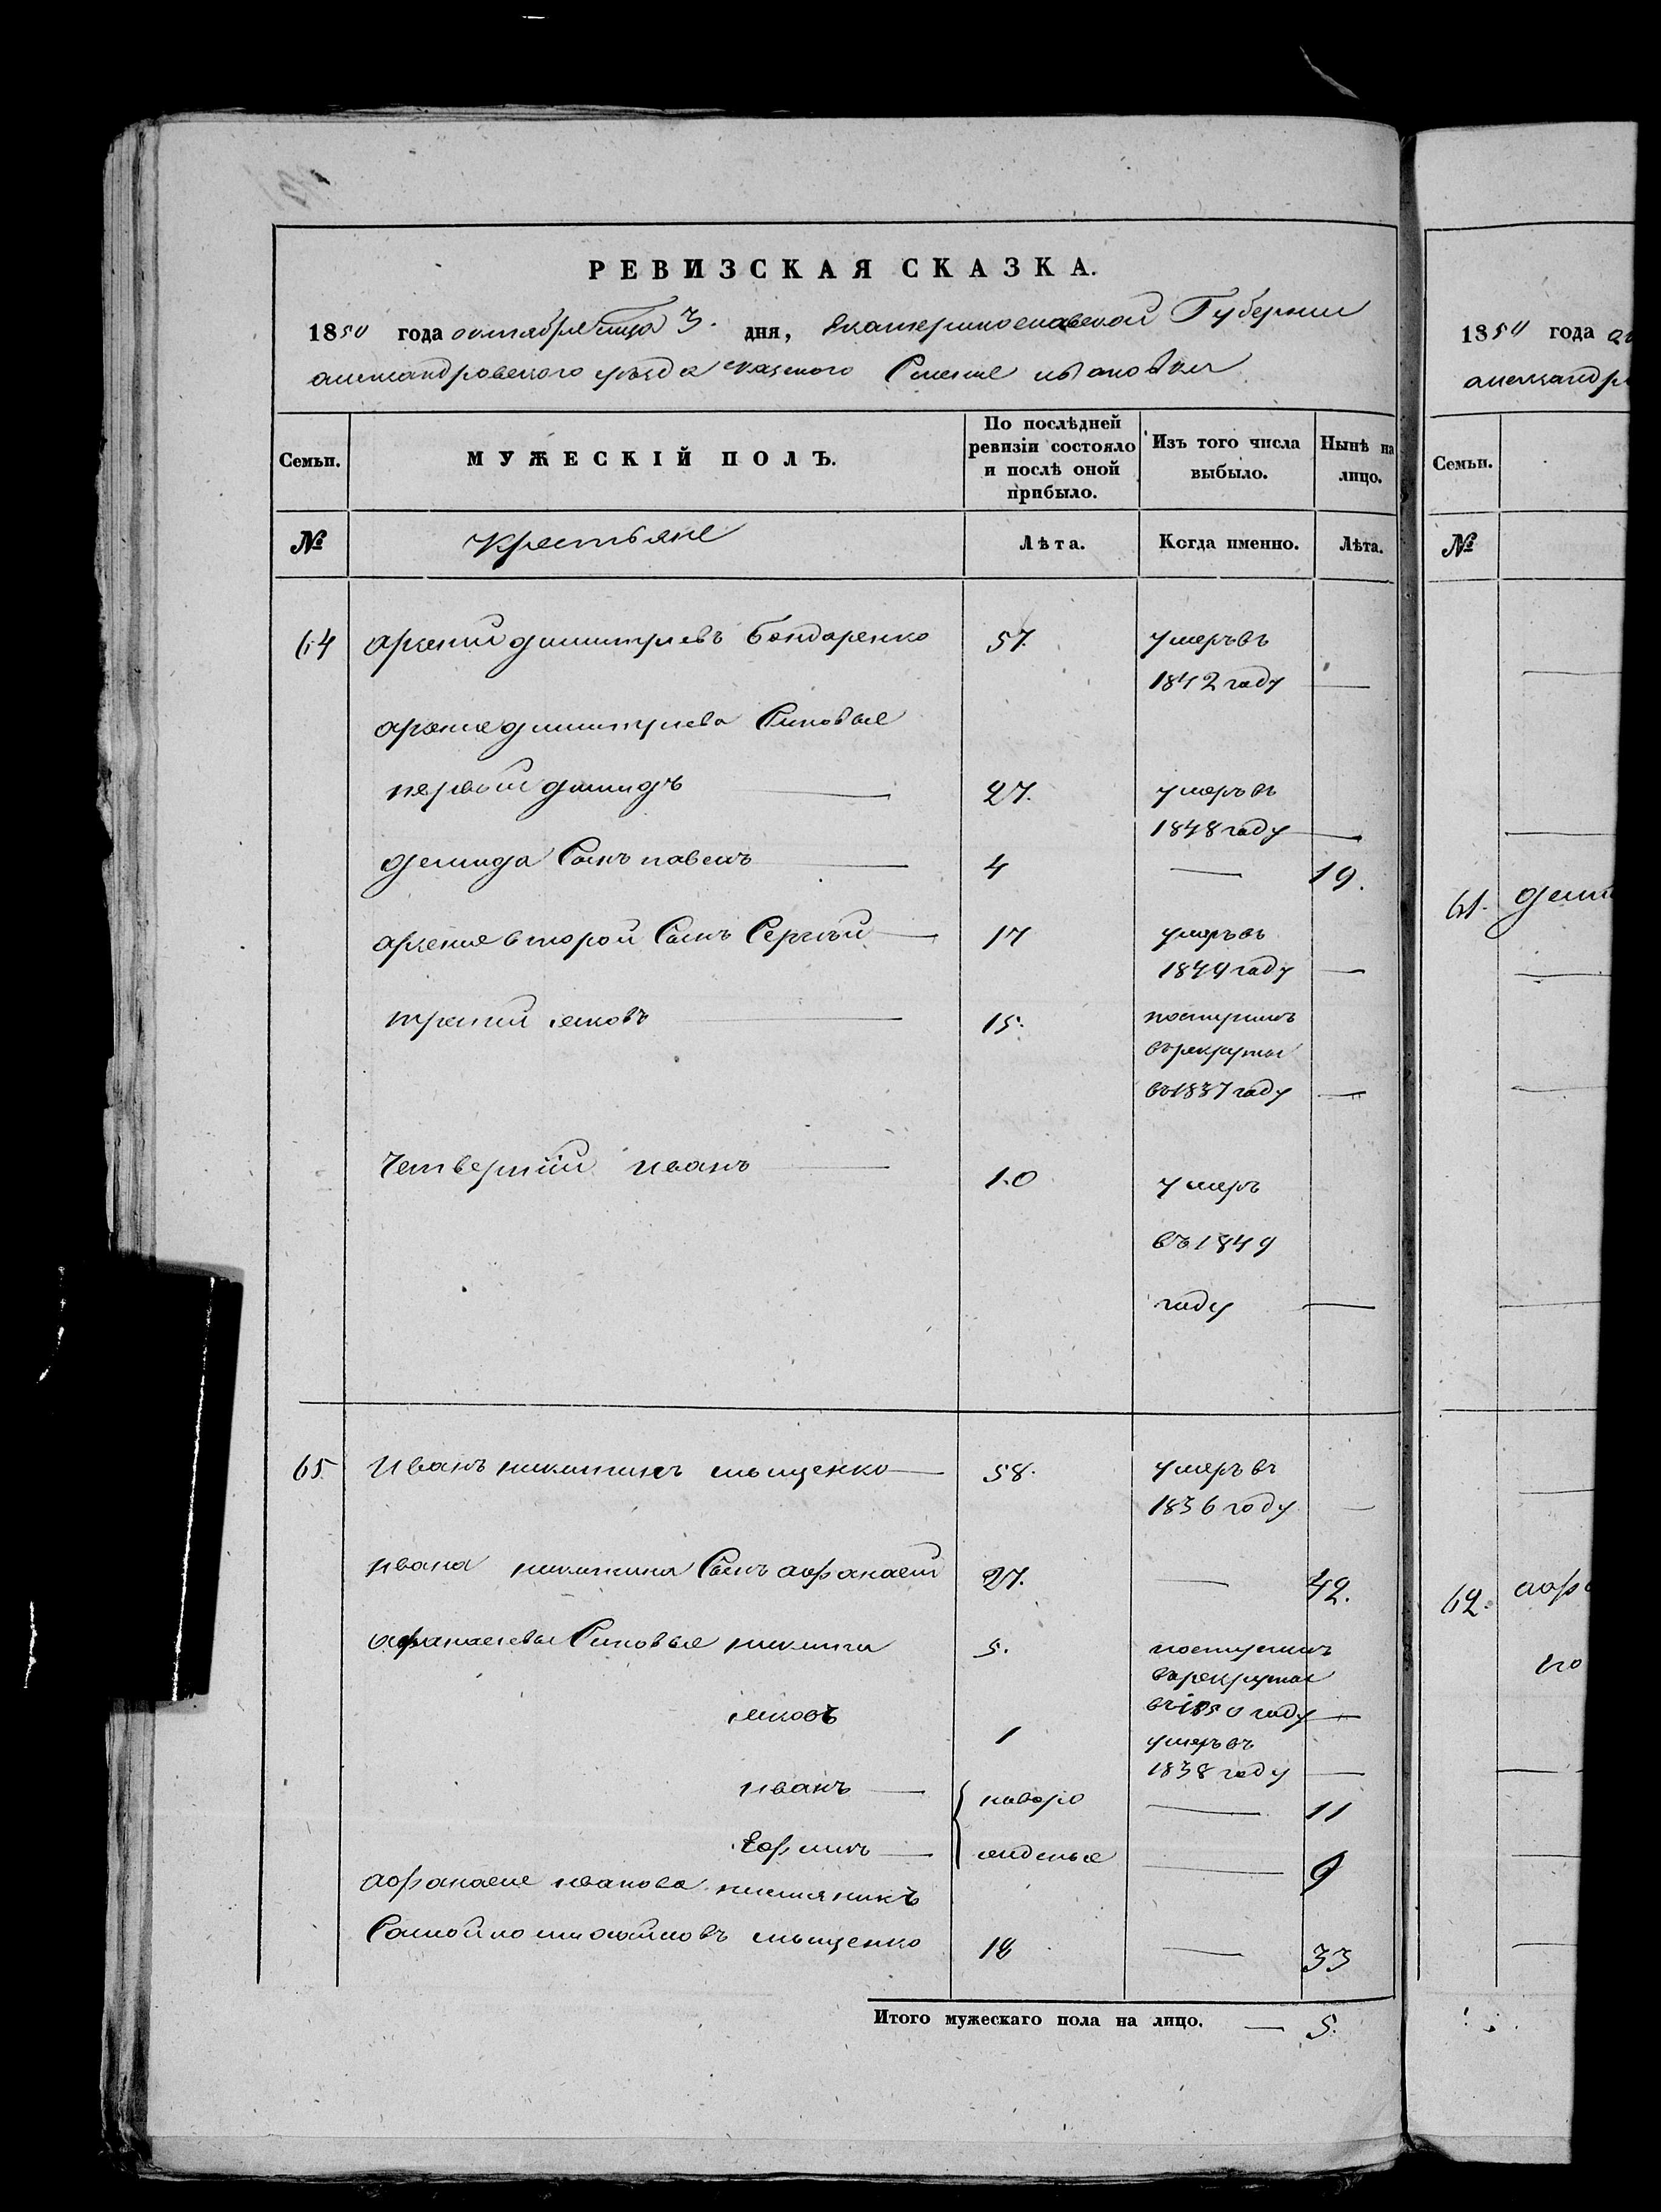 РЕВИЗСКАЯ СКАЗКА.
1850 года октября мца 3. дня, Екатеринославской Губернии
александровского уезда казеного Селение ивановки
Семьи. МУЖЕСКІЙ ПОЛЪ. По послѣдней ревизіи состояло и послѣ оной прибыло. Изъ того числа выбыло. Нынѣ на лицо.
№ Крестьяне Лѣта. Когда именно. Лѣта.
64 арсений димитриевъ бондаренко 57. умеръ въ
1842 году —
арсения димитриева Синовье
первый димидъ — 27. умеръ въ
1848 году —
демида Сынъ павелъ — 4 — 19.
арсения второй Сынъ Сергѣй — 17 умеръ въ
1849 году —
третий яковъ — 15. поступилъ
в рекруты
въ 1837 году —
Четвертий иванъ — 10 умеръ
въ 1849
году —
65 Иванъ никитинъ мищенко — 58. умеръ въ
1836 году —
ивана никитина Сынъ афанасий 27. — 42.
афанасиевы Синовье никита 5. поступилъ
в рекруты
въ 1850 году —
яковъ 1 умеръ въ
1838 году —
иванъ — новоро — 11
Ефимъ — жденые — 9
афанасие иванова племяникъ
Самойло мищенко 18 — 33
Итого мужескаго пола на лицо. — 5.
1850 года
александр
Семьи.
№
61.
62.